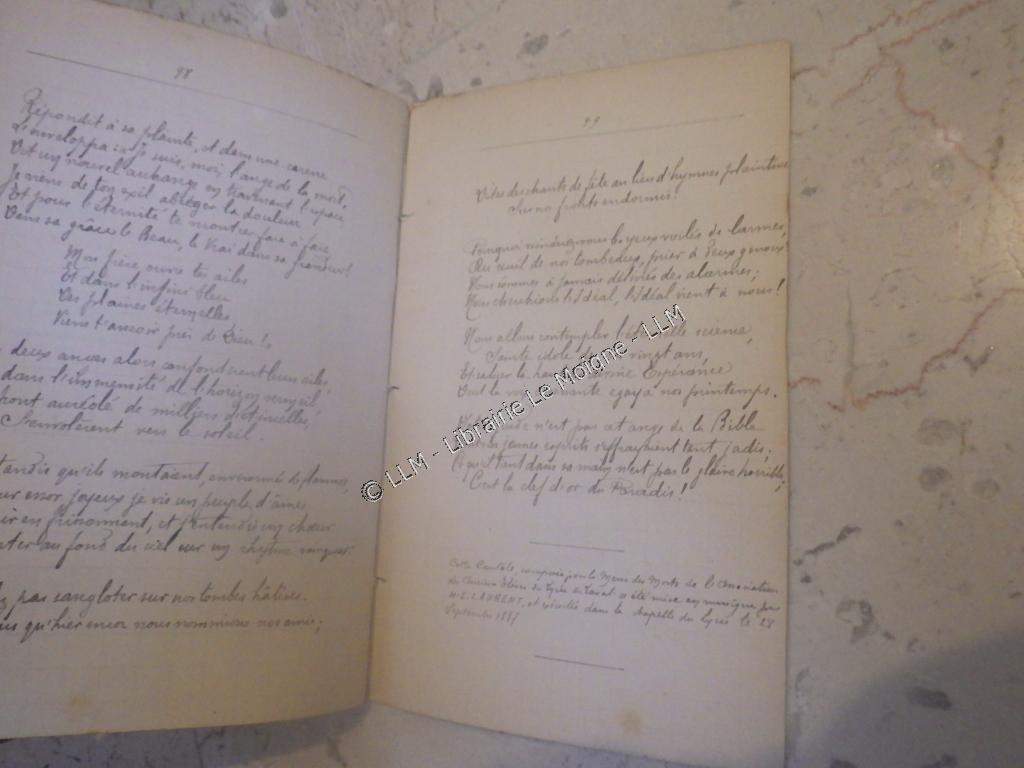 98
Répondit à sa plainte, et dans une caresse
L'enveloppa : Je suis, moi, l'ange de la mort,
Et un nouvel archange en traversant l'espace
Je viens de ton exil abréger la douleur
Et pour l'éternité te montrer face à face
Dans sa grâce le Beau, le Vrai dans sa grandeur!
Mon frère ouvre tes ailes
Et dans l'infini bleu
Les plaines éternelles
Viens t'asseoir près de Dieu!
deux anges alors confondirent leurs ailes,
dans l'immensité de l'horizon vermeil
front auréolé de milliers d'étincelles,
S'envolèrent vers le soleil.
tandis qu'ils montaient, environnés de flammes,
essor, joyeux je vis un peuple d'âmes
et j'entendis un chœur
au fond du ciel sur un rhythme vainqueur
pas sangloter sur nos tombes hâtives.
qu'hier encor nous nommions nos amis;
99
Vite des chants de fête au lieu d'hymnes plaintives
Sur nos fronts endormis!
Pourquoi viendriez-vous les yeux voilés de larmes,
Au seuil de nos tombeaux, prier à deux genoux?
Nous sommes à jamais délivrés des alarmes;
Nous cherchions l'Idéal, l'Idéal vient à nous!
Nous allons contempler science,
Sainte idole vingt ans,
Et saluer la Espérance
Dont la égaya nos printemps.
n'est pas cet ange de la Bible
jeunes esprits s'effrayaient tant jadis;
Ce qu'il tient dans sa main n'est pas le glaive horrible,
C'est la clef d'or du Paradis!
Cette Cantate composée pour la Messe des Morts de l'Association
des Anciens Elèves du Lycée de Laval a été mise en musique par
M. E. LAURENT, et exécutée dans la chapelle du Lycée le 28
Septembre 1887
© LLM - Librairie Le Moigne - LLM